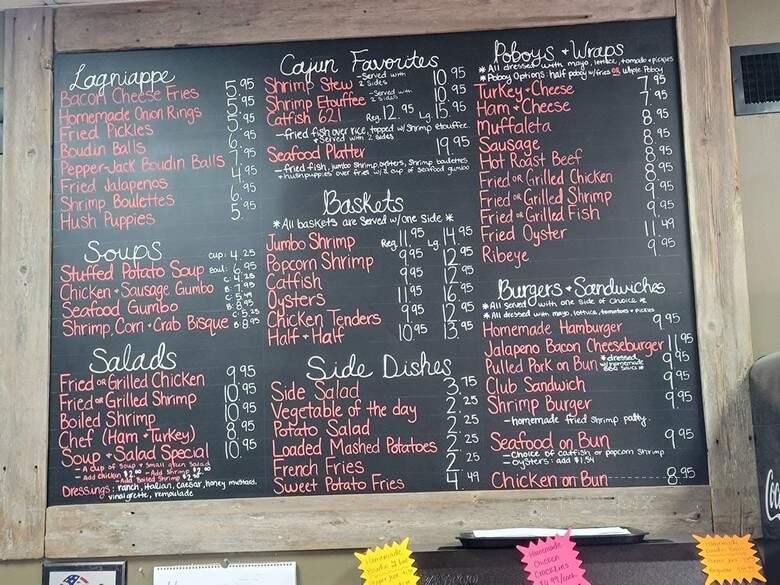 Lagniappe
Bacon Cheese Fries 5.95
Homemade Onion Rings 5.95
Fried Pickles 5.95
Boudin Balls 6.95
Pepper-Jack Boudin Balls 7.95
Fried Jalapenos 4.95
Shrimp Boulettes 6.95
Hush Puppies 5.95
Soups
Stuffed Potato Soup cup: 4.25
bowl: 6.95
Chicken + Sausage Gumbo c: 4.25
B: 7.95
Seafood Gumbo
B: 8.95
Shrimp, Corn + Crab Bisque c: 5.25
B: 8.95
Salads
Fried or Grilled Chicken 9.95
Fried or Grilled Shrimp 10.95
Boiled Shrimp 10.95
Chef (Ham + Turkey) 8.95
Soup + Salad Special 10.95
- A cup of soup + small green salad
- add chicken $2.00 - Add Shrimp $2.00
- Add Boiled Shrimp
Dressings: ranch, italian, caesar, honey mustard,
vinaigrette, remoulade
Cajun Favorites
Shrimp Stew - Served with 2 sides 10.95
Shrimp Etouffee - Served with 2 sides 10.95
Catfish 621 Reg. 12.95 Lg. 15.95
- fried fish over rice, topped w/ shrimp etouffee.
* Served with 2 sides
Seafood Platter 19.95
- fried fish, jumbo shrimp, oysters, shrimp boulettes
+ hushpuppies over fries w/ a cup of seafood gumbo
Baskets
* All baskets are served w/one side *
Jumbo Shrimp Reg. 11.95 Lg. 14.95
Popcorn Shrimp 9.95 12.95
Catfish 9.95 12.95
Oysters 11.95 16.95
Chicken Tenders 9.95 12.95
Half + Half 10.95 13.95
Side Dishes
Side Salad 3.75
Vegetable of the day 2.25
Potato Salad 2.25
Loaded Mashed Potatoes 2.25
French Fries 2.25
Sweet Potato Fries 4.49
Poboys + Wraps
* All dressed with mayo, lettuce, tomato + pickles
* Poboy Options: half poboy w/fries OR whole Poboy
Turkey + Cheese 7.95
Ham + Cheese 7.95
Muffaleta 8.95
Sausage 8.95
Hot Roast Beef 8.95
Fried or Grilled Chicken 8.95
Fried or Grilled Shrimp 9.95
Fried or Grilled Fish 9.95
Fried Oyster 11.49
Ribeye 9.95
Burgers + Sandwiches
* All Served with one side of choice *
* All dressed with mayo, lettuce, tomatoes + pickles
Homemade Hamburger 9.95
Jalapeno Bacon Cheeseburger 11.95
Pulled Pork on Bun * dressed w/homemade BBQ sauce * 9.95
Club Sandwich 9.95
Shrimp Burger 9.95
- homemade fried shrimp patty
Seafood on Bun 9.95
- choice of catfish or popcorn shrimp
- oysters: add $1.54
Chicken on Bun 8.95
Homemade
Homemade
Chicken
Cracklins
Homemade